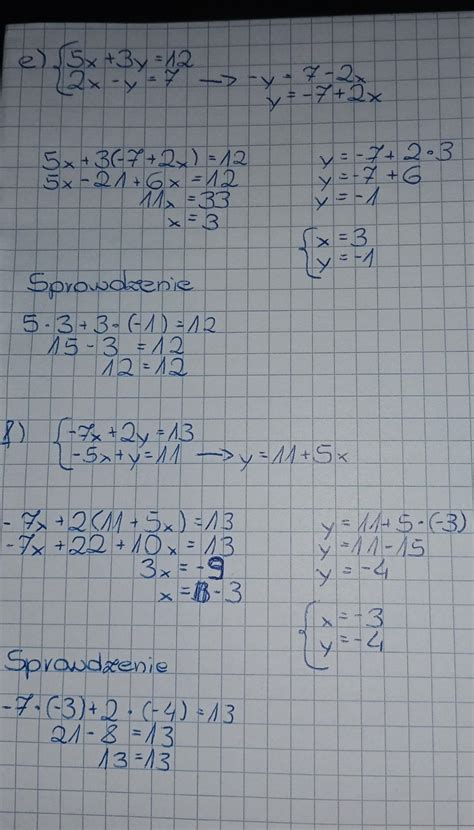 e) { 5x + 3y = 12
2x - y = 7 → -y = 7 - 2x
y = -7 + 2x
5x + 3(-7 + 2x) = 12
5x - 21 + 6x = 12
11x = 33
x = 3
y = -7 + 2 · 3
y = -7 + 6
y = -1
{ x = 3
y = -1
Sprawdzenie
5 · 3 + 3 · (-1) = 12
15 - 3 = 12
12 = 12
f) { -7x + 2y = 13
-5x + y = 11 → y = 11 + 5x
-7x + 2(11 + 5x) = 13
-7x + 22 + 10x = 13
3x = -9
x = -3
y = 11 + 5 · (-3)
y = 11 - 15
y = -4
{ x = -3
y = -4
Sprawdzenie
-7 · (-3) + 2 · (-4) = 13
21 - 8 = 13
13 = 13